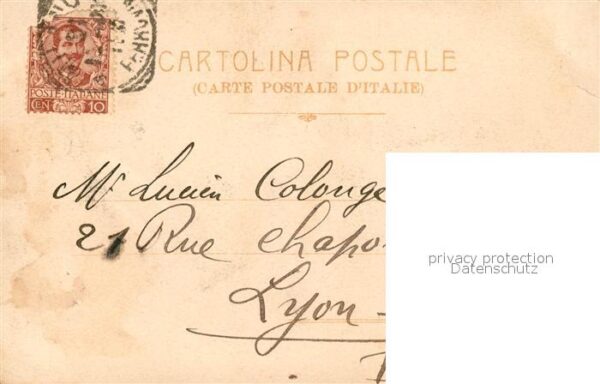 CARTOLINA POSTALE
(CARTE POSTALE D'ITALIE)
POSTE ITALIANE
CEN 10
FERROVIA
Mr Lucien Colonge
21 Rue Chapo
Lyon
privacy protection
Datenschutz